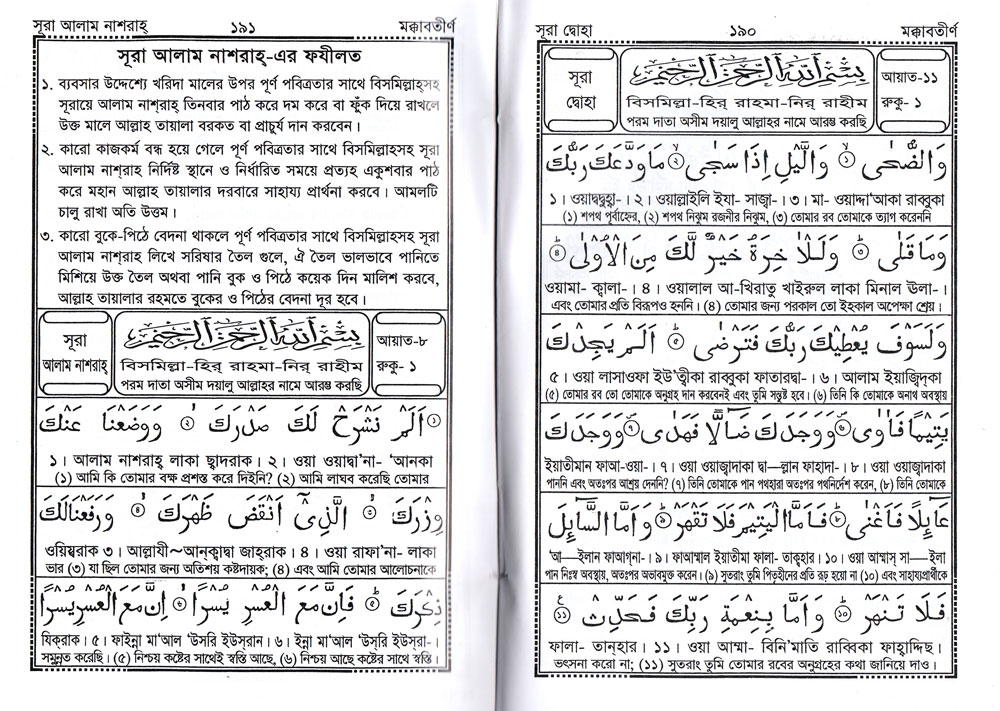 সূরা দ্বোহা ১৯০ মক্কাবতীর্ণ
সূরা
দ্বোহা
بِسْمِ اللّٰهِ الرَّحْمٰنِ الرَّحِيْمِ
বিসমিল্লা-হির্ রাহমা-নির্ রাহীম
পরম দাতা অসীম দয়ালু আল্লাহর নামে আরম্ভ করছি
আয়াত-১১
রুকু- ১
وَالضُّحٰى ۝١ وَالَّيْلِ اِذَا سَجٰى ۝٢ مَا وَدَّعَكَ رَبُّكَ
১। ওয়াদ্বদ্বুহা-। ২। ওয়াল্লাইলি ইযা- সাজ্বা-। ৩। মা- ওয়াদ্দা‘আকা রাব্বুকা
(১) শপথ পূর্বাহ্নের, (২) শপথ নিঝুম রজনীর নিঝুম, (৩) তোমার রব তোমাকে ত্যাগ করেননি
وَمَا قَلٰى ۝٣ وَلَلْاٰ خِرَةُ خَيْرٌ لَّكَ مِنَ الْاُوْلٰى ۝٤
ওয়ামা- ক্বালা-। ৪। ওয়ালাল আ-খিরাতু খাইরুল লাকা মিনাল ঊলা-।
এবং তোমার প্রতি বিরূপও হননি। (৪) তোমার জন্য পরকাল তো ইহকাল অপেক্ষা শ্রেয়।
وَلَسَوْفَ يُعْطِيْكَ رَبُّكَ فَتَرْضٰى ۝٥ اَلَمْ يَجِدْكَ
৫। ওয়া লাসাওফা ইউ‘ত্বীকা রাব্বুকা ফাতারদ্বা-। ৬। আলাম ইয়াজ্বিদ্‌কা
(৫) তোমার রব তো তোমাকে অনুগ্রহ দান করবেনই এবং তুমি সন্তুষ্ট হবে। (৬) তিনি কি তোমাকে অনাথ অবস্থায়
يَتِيْمًا فَاٰوٰى ۝٦ وَوَجَدَكَ ضَآلًّا فَهَدٰى ۝٧ وَوَجَدَكَ
ইয়াতীমান ফাআ-ওয়া-। ৭। ওয়া ওয়াজ্বাদাকা দ্বা—ল্লান ফাহাদা-। ৮। ওয়া ওয়াজ্বাদাকা
পাননি এবং অতঃপর আশ্রয় দেননি? (৭) তিনি তোমাকে পান পথহারা অতঃপর পথনির্দেশ করেন, (৮) তিনি তোমাকে
عَآئِلًا فَاَغْنٰى ۝٨ فَاَمَّا الْيَتِيْمَ فَلَا تَقْهَرْ ۝٩ وَاَمَّا السَّآئِلَ
‘আ—ইলান ফাআগ্‌না-। ৯। ফাআম্মাল ইয়াতীমা ফালা- তাক্বহার। ১০। ওয়া আম্মাস্ সা—ইলা
পান নিঃস্ব অবস্থায়, অতঃপর অভাবমুক্ত করেন। (৯) সুতরাং তুমি পিতৃহীনের প্রতি রূঢ় হয়ো না (১০) এবং সাহায্যপ্রার্থীকে
فَلَا تَنْهَرْ ۝١٠ وَاَمَّا بِنِعْمَةِ رَبِّكَ فَحَدِّثْ ۝١١
ফালা- তান্‌হার। ১১। ওয়া আম্মা- বিনি‘মাতি রাব্বিকা ফাহাদ্দিছ।
ভৎসনা করো না; (১১) সুতরাং তুমি তোমার রবের অনুগ্রহের কথা জানিয়ে দাও।
সূরা আলাম নাশরাহ্ ১৯১ মক্কাবতীর্ণ
সূরা আলাম নাশরাহ্-এর ফযীলত
১. ব্যবসার উদ্দেশ্যে খরিদা মালের উপর পূর্ণ পবিত্রতার সাথে বিসমিল্লাহ্‌সহ
সূরায়ে আলাম নাশ্‌রাহ্ তিনবার পাঠ করে দম করে বা ফুঁক দিয়ে রাখলে
উক্ত মালে আল্লাহ তায়ালা বরকত বা প্রাচুর্য দান করবেন।
২. কারো কাজকর্ম বন্ধ হয়ে গেলে পূর্ণ পবিত্রতার সাথে বিসমিল্লাহসহ সূরা
আলাম নাশ্‌রাহ নির্দিষ্ট স্থানে ও নির্ধারিত সময়ে প্রত্যহ একুশবার পাঠ
করে মহান আল্লাহ তায়ালার দরবারে সাহায্য প্রার্থনা করবে। আমলটি
চালু রাখা অতি উত্তম।
৩. কারো বুকে-পিঠে বেদনা থাকলে পূর্ণ পবিত্রতার সাথে বিসমিল্লাহসহ সূরা
আলাম নাশ্‌রাহ লিখে সরিষার তৈল গুলে, ঐ তৈল ভালভাবে পানিতে
মিশিয়ে উক্ত তৈল অথবা পানি বুক ও পিঠে কয়েক দিন মালিশ করবে,
আল্লাহ তায়ালার রহমতে বুকের ও পিঠের বেদনা দূর হবে।
সূরা
আলাম নাশরাহ্
بِسْمِ اللّٰهِ الرَّحْمٰنِ الرَّحِيْمِ
বিসমিল্লা-হির্ রাহমা-নির্ রাহীম
পরম দাতা অসীম দয়ালু আল্লাহর নামে আরম্ভ করছি
আয়াত-৮
রুকু- ১
اَلَمْ نَشْرَحْ لَكَ صَدْرَكَ ۝١ وَوَضَعْنَا عَنْكَ
১। আলাম নাশরাহ্ লাকা ছাদরাক। ২। ওয়া ওয়াদ্বা‘না- ‘আনকা
(১) আমি কি তোমার বক্ষ প্রশস্ত করে দিইনি? (২) আমি লাঘব করেছি তোমার
وِزْرَكَ ۝٢ الَّذِىْٓ اَنْقَضَ ظَهْرَكَ ۝٣ وَرَفَعْنَالَكَ
ওয়িয্‌রাক ৩। আল্লাযী~আন্‌ক্বাদ্বা জাহ্‌রাক। ৪। ওয়া রাফা‘না- লাকা
ভার (৩) যা ছিল তোমার জন্য অতিশয় কষ্টদায়ক; (৪) এবং আমি তোমার আলোচনাকে
ذِكْرَكَ ۝٤ فَاِنَّ مَعَ الْعُسْرِ يُسْرًا ۝٥ اِنَّ مَعَ الْعُسْرِ يُسْرًا
যিক্‌রাক। ৫। ফাইন্না মা‘আল ‘উস্‌রি ইউস্‌রান। ৬। ইন্না মা‘আল ‘উস্‌রি ইউস্‌রা-।
সমুন্নত করেছি। (৫) নিশ্চয় কষ্টের সাথেই স্বস্তি আছে, (৬) নিশ্চয় আছে কষ্টের সাথে স্বস্তি।